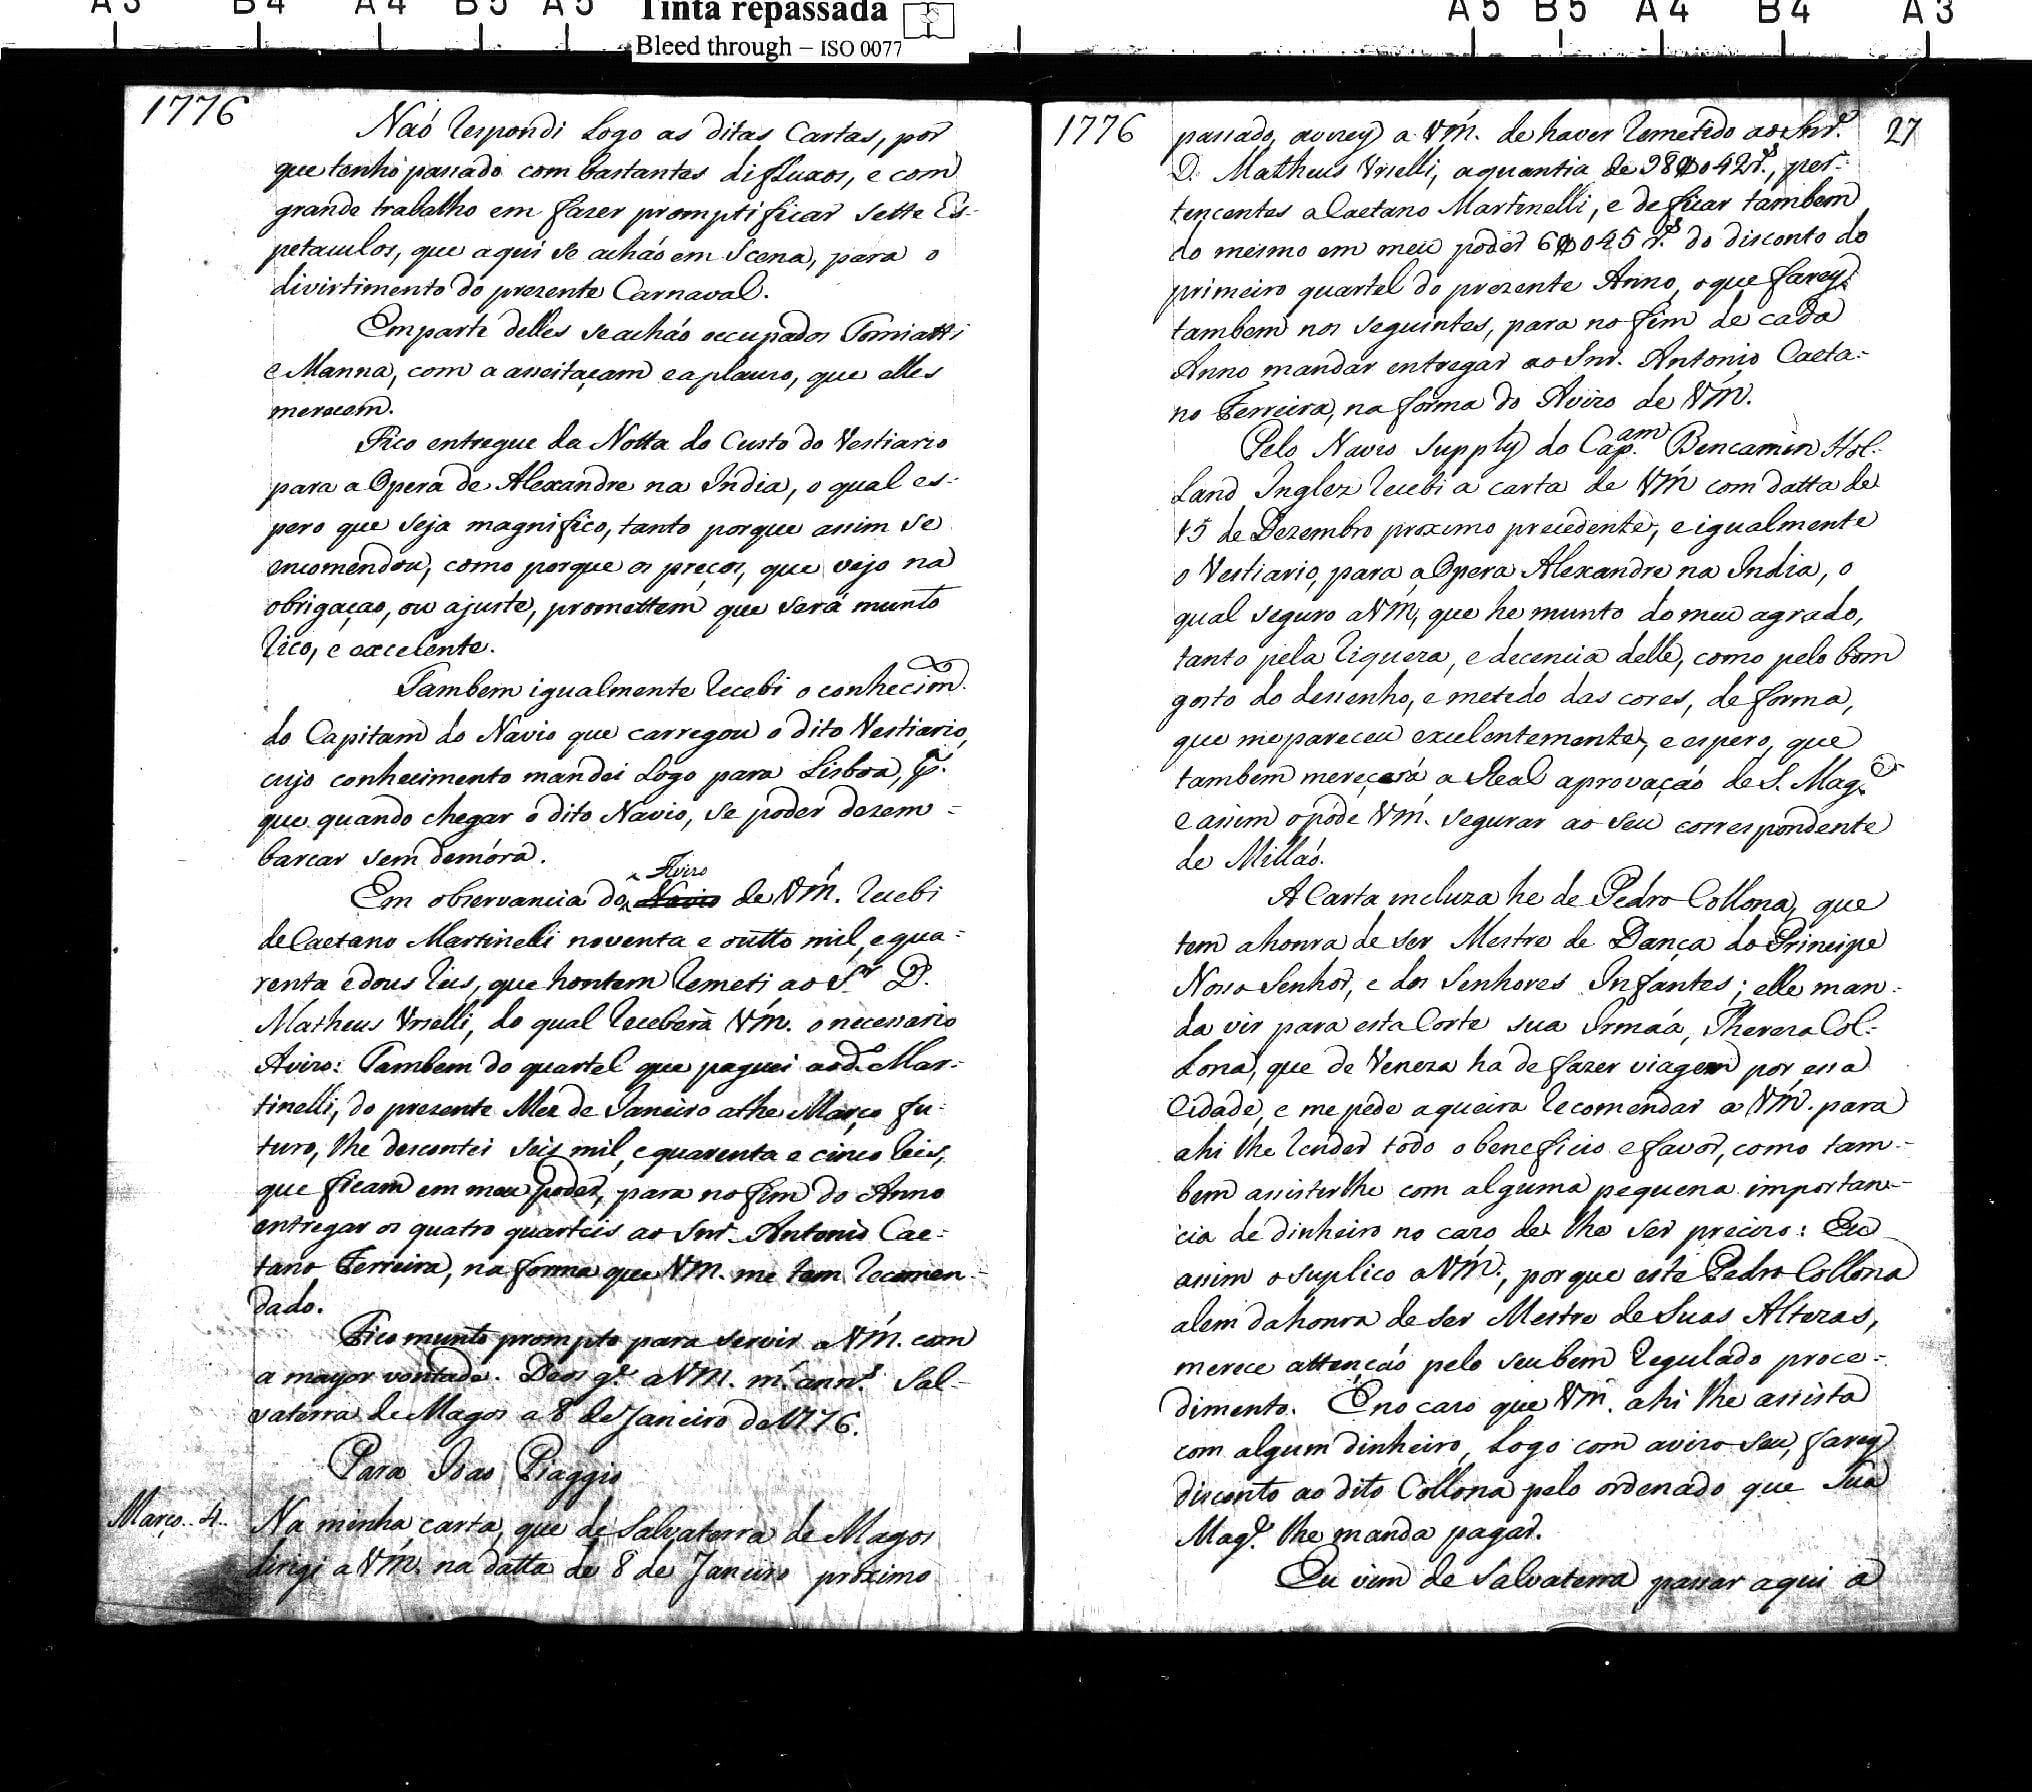 A3 B4 A4 B5 A5 Tinta repassada A5 B5 A4 B4 A3
Bleed through – ISO 0077
1776
Naõ respondi logo as ditas Cartas, por
que tenho passado com bastantes difluxos, e com
grande trabalho em fazer promptificar sette Es-
petaculos, que aqui se achaõ em Scena, para o
divirtimento do prezente Carnaval.
Em parte delles se achaõ occupados Torriatti
e Manna, com a asseitaçam e aplauzo, que elles
merecem.
Fico entregue da Notta do Custo do Vestiario
para a Opera de Alexandre na India, o qual es-
pero que seja magnifico, tanto porque assim se
encomendou, como porque os preços, que vejo na
obrigaçaõ, ou ajuste, promettem que será munto
rico, e excelente.
Tambem igualmente recebi o conhecim.
do Capitam do Navio que carregou o dito Vestiario,
cujo conhecimento mandei logo para Lisboa, p.
que quando chegar o dito Navio, se poder dezem-
barcar sem demóra.
Avizo
Em observancia do Navio de Vm. recebi
de Caetano Martinelli noventa e outto mil, e qua-
renta e dous reis, que hontem remeti ao Sr. D.
Matheus Vrielli, do qual receberá Vm. o necessario
Avizo: Tambem do quartel que paguei ao d.º Mar-
tinelli, do prezente Mez de Janeiro athe Março fu-
turo, lhe descontei seis mil, e quarenta e cinco reis,
que ficam em meu poder, para no fim do Anno
entregar os quatro quarteis ao Snr. Antonio Cae-
tano Ferreira, na forma que Vm. me tem recomen-
dado.
Fico munto prompto para servir a Vm. com
a mayor vontade. Deos g.e a Vm. m. ann.s Sal-
vaterra de Magos a 8 de Janeiro de 1776.
Para Joaõ Piaggio
Março..4.. Na minha carta, que de Salvaterra de Magos
dirigi a Vm. na datta de 8 de Janeiro proximo
1776 27
passado, avizey a Vm. de haver remetido ao Snr.
D. Matheus Vrielli, a quantia de 98$042 r.s, per-
tencentes a Caetano Martinelli, e de ficar tambem
do mesmo em meu poder 6$045 r.s do disconto do
primeiro quartel do prezente Anno, o que farey
tambem nos seguintes, para no fim de cada
Anno mandar entregar ao Snr. Antonio Caeta-
no Ferreira, na forma do Avizo de Vm.
Pelo Navio Supply do Cap.am Bencamin Hol-
land Inglez recebi a carta de Vm com datta de
15 de Dezembro proximo precedente, e igualmente
o Vestiario, para a Opera Alexandre na India, o
qual seguro a Vm, que he munto do meu agrado,
tanto pela riqueza, e decencia delle, como pelo bom
gosto do dessenho, e metedo das cores, de forma,
que me pareceu excelentemente, e espero, que
tambem mereçerá a Real aprovaçaõ de S. Mag.e
e assim o póde Vm. segurar ao seu correspondente
de Millaõ.
A Carta incluza he de Pedro Collona, que
tem a honra de ser Mestre de Dança do Principe
Nosso Senhor, e dos Senhores Infantes; elle man-
da vir para esta Corte sua Irmáa, Thereza Col-
lona, que de Veneza ha de fazer viagem por essa
Cidade, e me péde a queira recomendar a Vm. para
ahi lhe render todo o beneficio e favor, como tam-
bem assisterlhe com alguma pequena importan-
cia de dinheiro no cazo de lhe ser precizo: Eu
assim o suplico a Vm., porque este Pedro Collona
alem da honra de ser Mestre de Suas Altezas,
merece attençaõ pelo seu bem regulado proce-
dimento. E no cazo que Vm. ahi lhe assista
com algum dinheiro, logo com avizo seu, farey
disconto ao dito Collona pelo ordenado que Sua
Mag.e lhe manda pagar.
Eu vim de Salvaterra passar aqui a